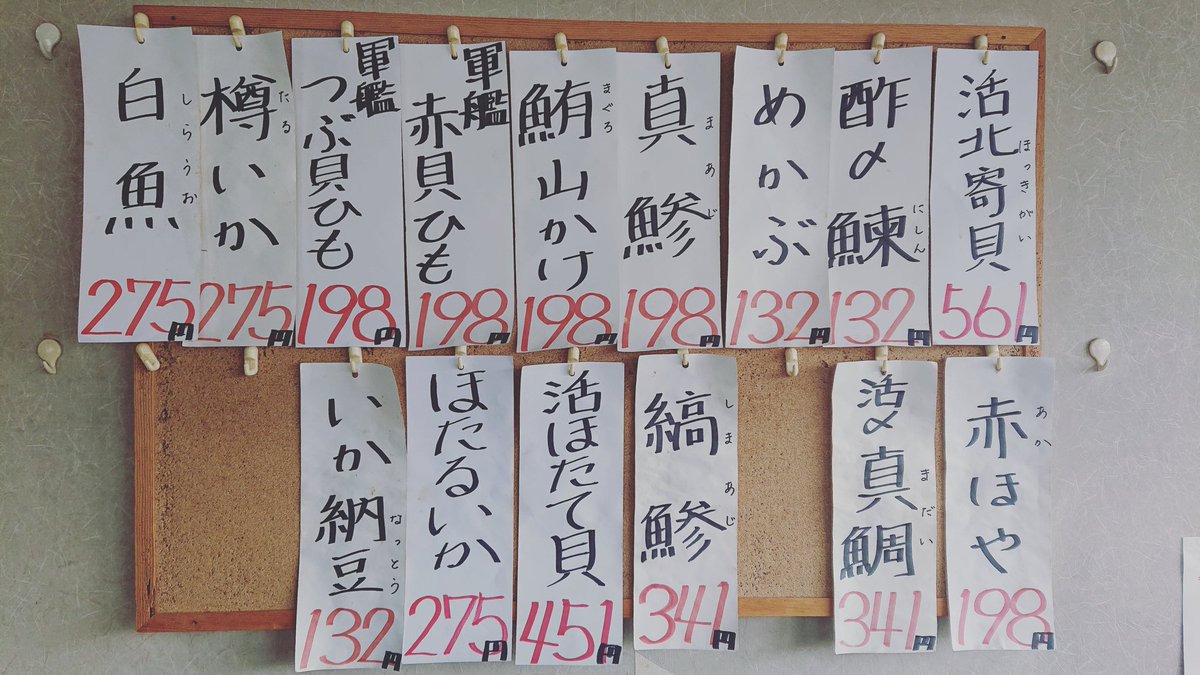 活北寄貝
ほっきがい
561円
酢〆鰊
にしん
132円
めかぶ
132円
真鯵
まあじ
198円
鮪山かけ
まぐろ
198円
軍艦
赤貝ひも
198円
軍艦
つぶ貝ひも
198円
樽いか
たる
275円
白魚
しらうお
275円
赤ほや
あか
198円
活〆真鯛
まだい
341円
縞鯵
しまあじ
341円
活ほたて貝
451円
ほたるいか
275円
いか納豆
なっとう
132円